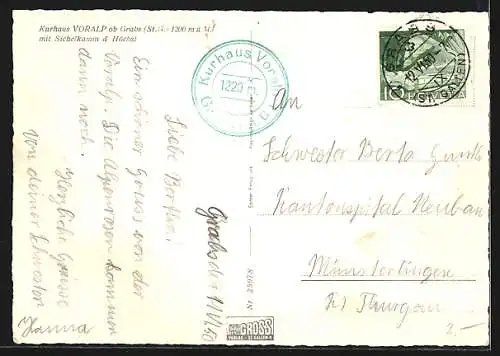 Kurhaus VORALP ob Grabs (St. G.) 1200 m ü. M.
mit Sichelkamm & Höchst
Grabs den 11.VI.50
Liebe Bertie!
Ein schöner Gruss von der
Voralp. Die Alpenrosen kommen
dann noch.
Herzliche Grüsse
von deiner Schwester
Hanna
Kurhaus Voralp
1220
GRABS
(ST. GALLEN)
10
An
Schwester Berta
Kantonsspital Neubau
Münsterlingen
Kt Thurgau
2.-
Nr. 25978
GROSS
VERLAG - ST. GALLEN